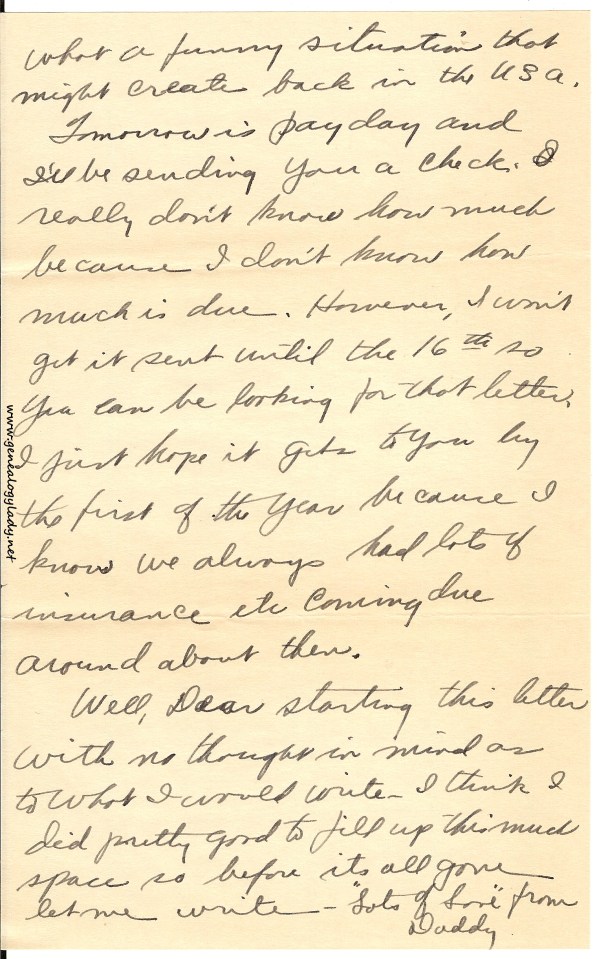 what a funny situation that
might create back in the USA.
Tomorrow is payday and
I'll be sending you a check. I
really don't know how much
because I don't know how
much is due. However, I won't
get it sent until the 16th so
you can be looking for that letter.
I just hope it gets to you by
the first of the year because I
know we always had lots of
insurance etc coming due
around about then.
Well, Dear starting this letter
with no thought in mind as
to what I would write - I think I
did pretty good to fill up this much
space so before its all gone
let me write - "Lots of Love" from
Daddy
www.genealogylady.net